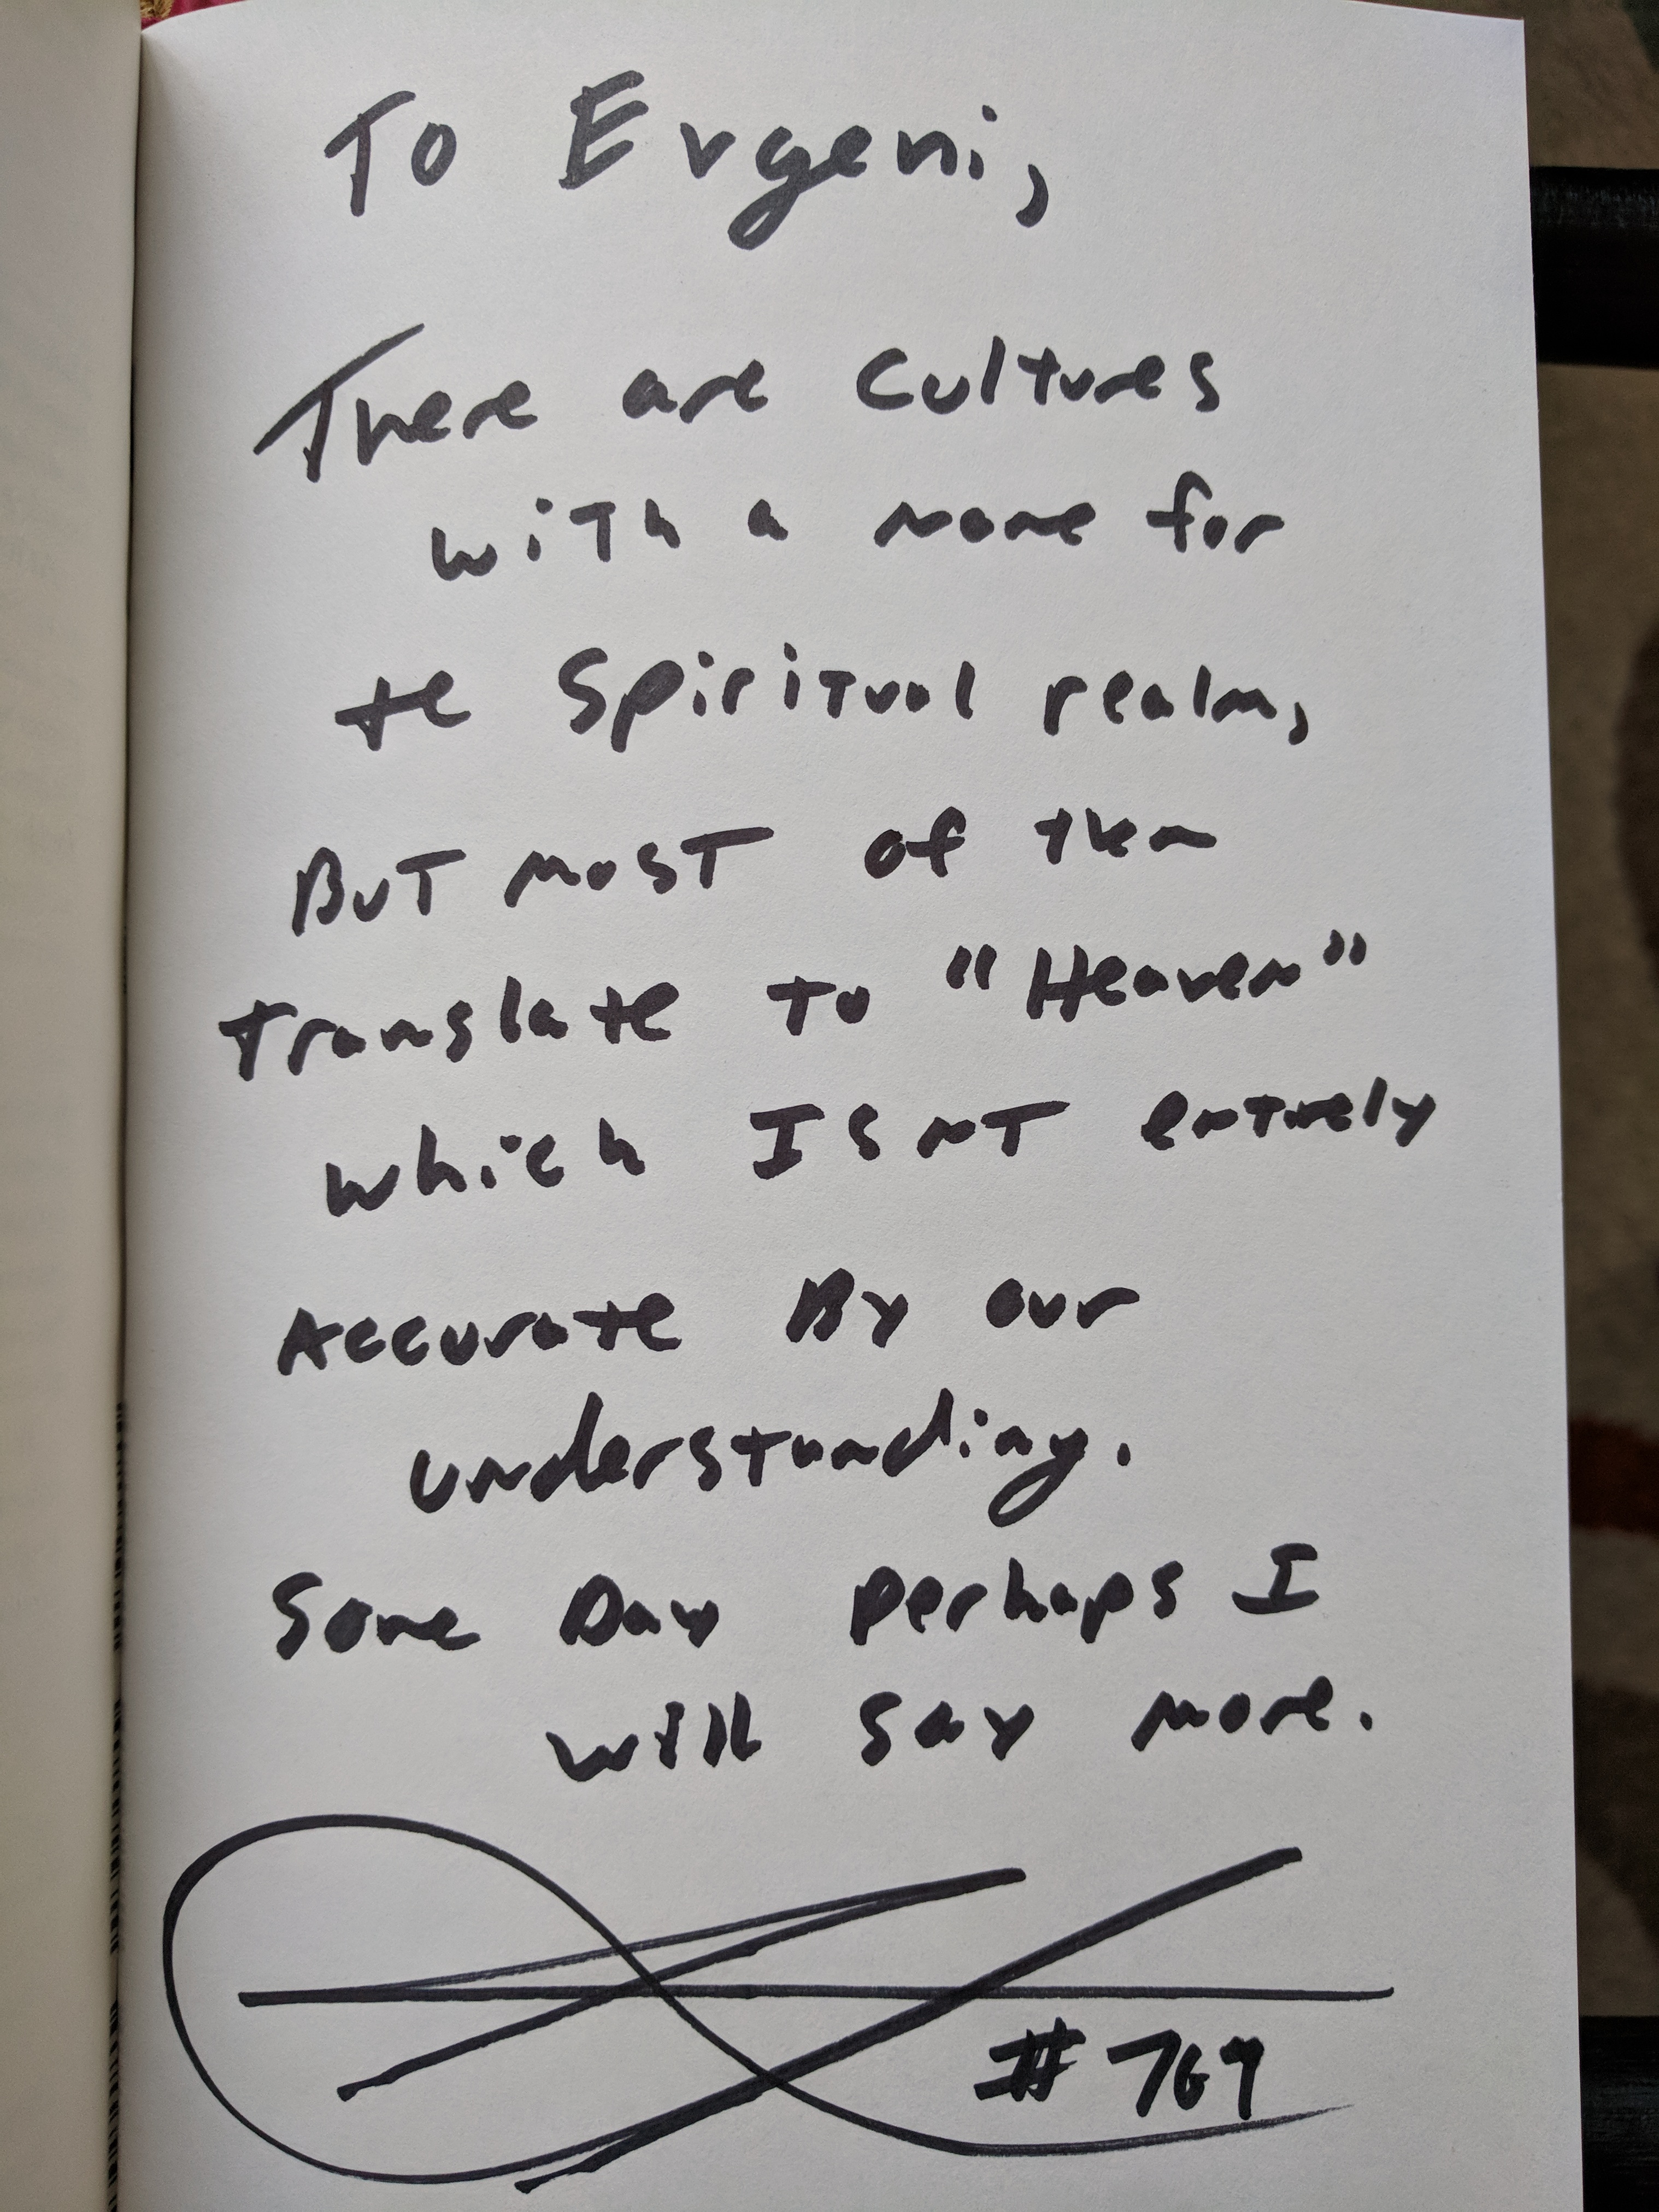 To Evgeni,
There are Cultures
with a name for
te Spiritual realm,
But most of them
translate to "Heaven"
which Isnt entirely
Accurate By our
understanding.
Some Day perhaps I
will say more.
#769